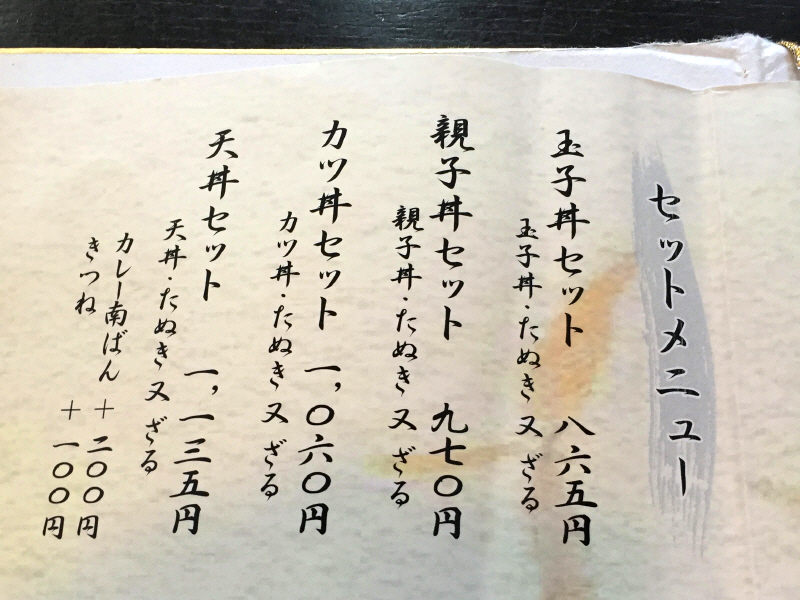 セットメニュー
玉子丼セット 八六五円
玉子丼・たぬき又ざる
親子丼セット 九七〇円
親子丼・たぬき又ざる
カツ丼セット 一,〇六〇円
カツ丼・たぬき又ざる
天丼セット 一,一三五円
天丼・たぬき又ざる
カレー南ばん +二〇〇円
きつね +一〇〇円